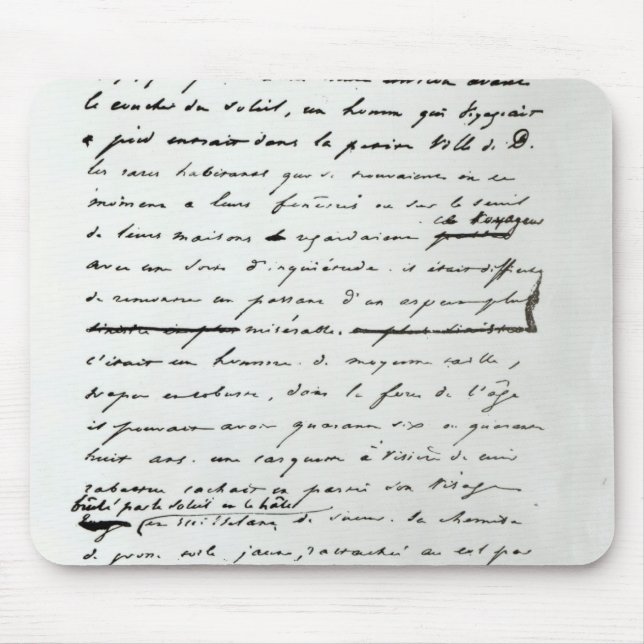 une heure environ avant
le coucher du soleil, un homme qui voyageait
à pied entrait dans la petite ville de D.
les rares habitants qui se trouvaient en ce
moment à leurs fenêtres ou sur le seuil
de leurs maisons regardaient ce voyageur
avec une sorte d'inquiétude. il était difficile
de rencontrer un passant d'un aspect plus
misérable.
c'était un homme de moyenne taille,
trapu et robuste, dans la force de l'âge
il pouvait avoir quarante six ou quarante
huit ans. une casquette à visière de cuir
rabattue cachait en partie son visage
brûlé par le soleil et le hâle
et ruisselant de sueur. sa chemise
de grosse toile jaune, rattachée au col par